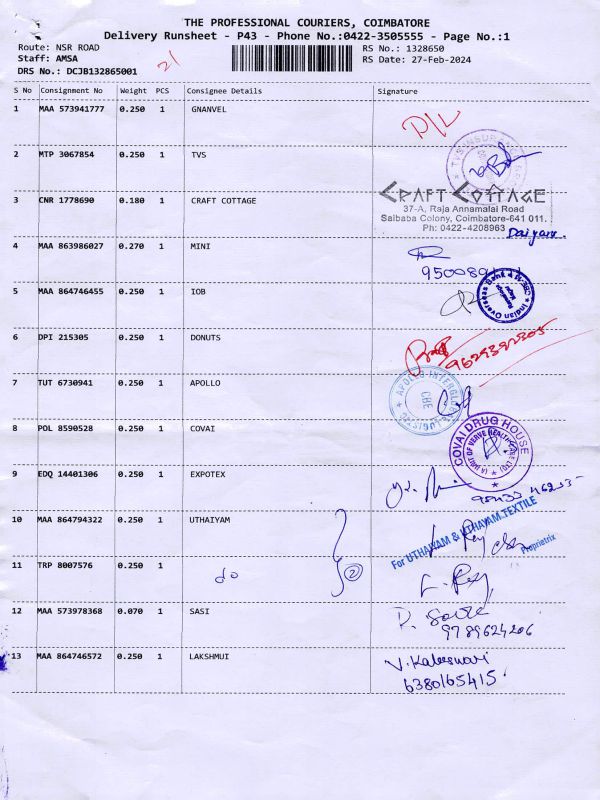 THE PROFESSIONAL COURIERS, COIMBATORE
Delivery Runsheet - P43 - Phone No.:0422-3505555 - Page No.:1
Route: NSR ROAD
RS No.: 1328650
Staff: AMSA
RS Date: 27-Feb-2024
DRS No.: DCJB132865001
21
S No Consignment No Weight PCS Consignee Details Signature
1 MAA 573941777 0.250 1 GNANVEL
D/L
2 MTP 3067854 0.250 1 TVS
TVS INSURANCE
3 CNR 1778690 0.180 1 CRAFT COTTAGE
CRAFT COTTAGE
37-A, Raja Annamalai Road
Saibaba Colony, Coimbatore-641 011.
Ph: 0422-4208963
4 MAA 863986027 0.270 1 MINI
5 MAA 864746455 0.250 1 IOB
Indian Overseas Bank
6 DPI 215305 0.250 1 DONUTS
7 TUT 6730941 0.250 1 APOLLO
CBE
8 POL 8590528 0.250 1 COVAI
COVAI DRUG HOUSE
9 EDQ 14401306 0.250 1 EXPOTEX
10 MAA 864794322 0.250 1 UTHAIYAM
For UTHAIYAM & UTHAYAM TEXTILE
Proprietrix
11 TRP 8007576 0.250 1 do
2
12 MAA 573978368 0.070 1 SASI
9789624206
13 MAA 864746572 0.250 1 LAKSHMUI
V. Kaleswari
6380165415